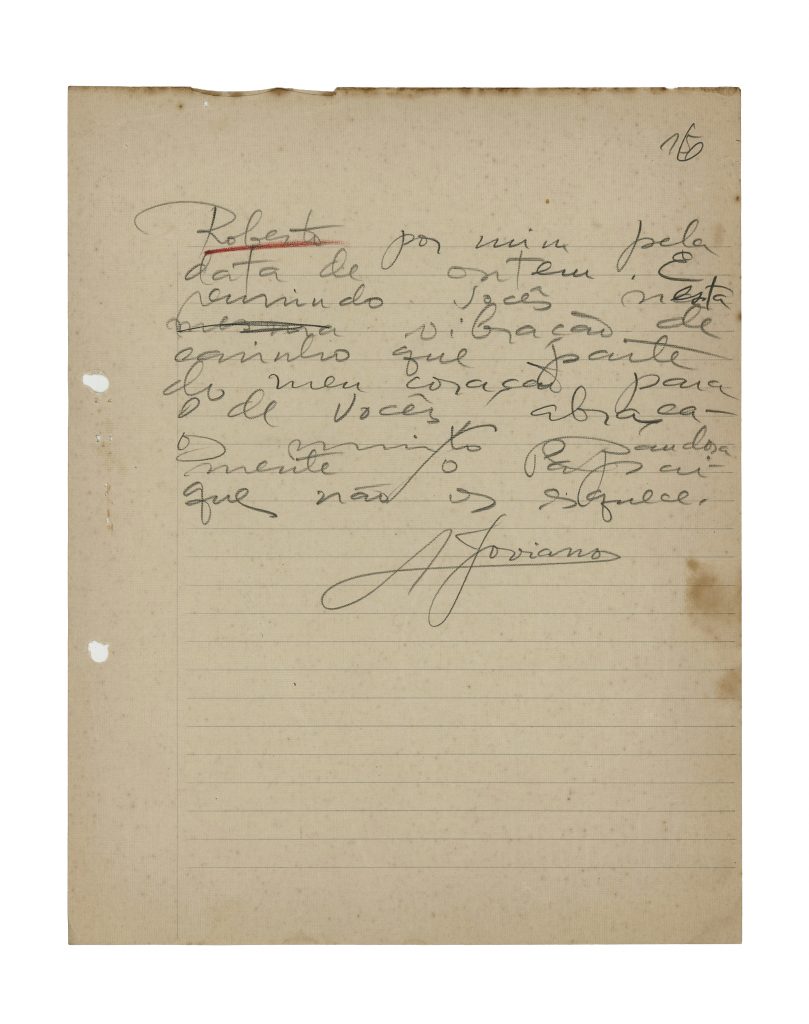 16
Roberto por mim pela
data de ontem. E
reunindo vocês nesta
mesma vibração de
carinho que parte
do meu coração para
o de vocês, abraça-
os muito saudosa
mente o Papai
que não os esquece.
A Joviano